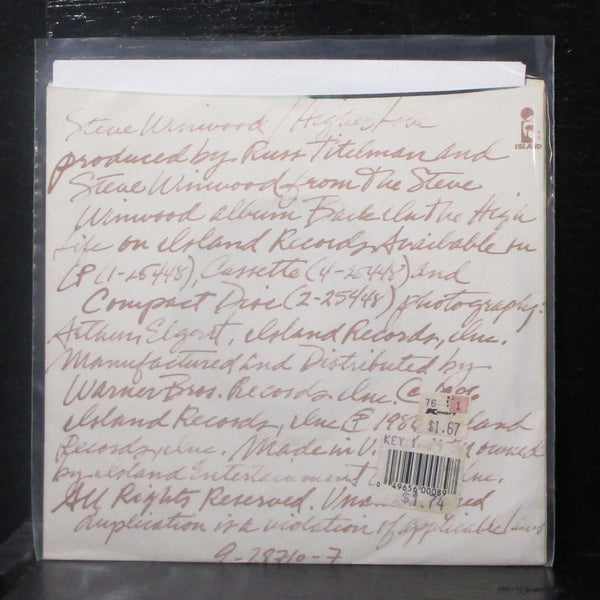 Steve Winwood / Higher Love
ISLAND
produced by Russ Titelman and
Steve Winwood from the Steve
Winwood album Back In The High
Life on Island Records Available on
LP (1-25448), Cassette (4-25448) and
Compact Disc (2-25448) photography:
Arthur Elgort, Island Records, Inc.
Manufactured and Distributed by
Warner Bros. Records Inc.
76 1
Island Records, Inc ℗ 198
$1.67
Records, Inc. Made in U. owned
KEY 1
by Island Entertainment Inc.
0 49656 00089
All Rights Reserved.
$1.74
duplication is a violation of applicable laws
9-28710-7